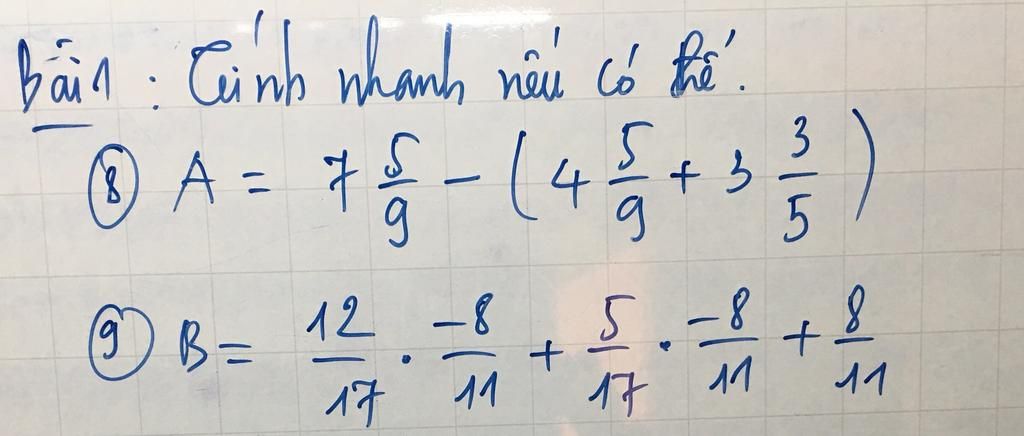 Bài 1 : Tính nhanh nếu có thể.
⑧ A = 7 5/9 - ( 4 5/9 + 3 3/5 )
⑨ B = 12/17 . -8/11 + 5/17 . -8/11 + 8/11